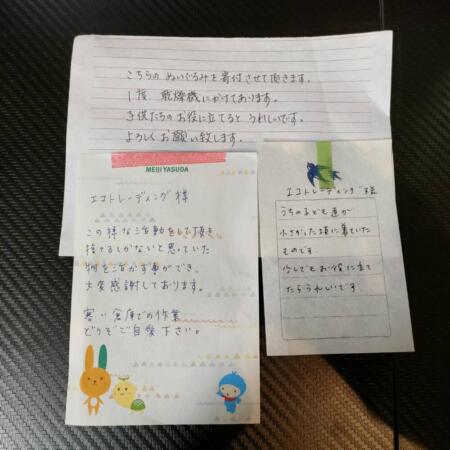 こちらの ぬいぐるみを寄付させて頂きます。
1度 乾燥機にかけてあります。
子供たちのお役に立てると うれしいです。
よろしくお願い致します。
MEIJI YASUDA
エコトレーディング 様
この様な活動をして頂き
捨てるしかないと思っていた
物を活かす事ができ、
大変感謝しております。
寒い倉庫での作業
どうぞご自愛下さい。
エコトレーディング 様
うちの子ども達が
小さかった頃に着ていた
ものです。
少しでもお役に立て
たらうれしいです